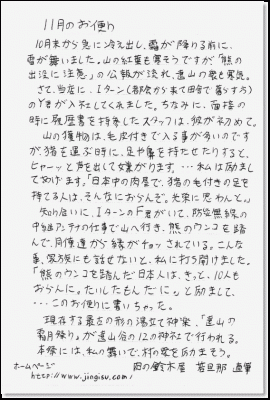 11月のお便り
10月末から急に冷え出し、霜が降りる前に、
雪が舞いました。山の紅葉も寒そうですが「熊の
出没に注意」の公報が流れ、遠山の夜も寒い。
さて、当店に、Iターン(都会から来て田舎で暮らす)
のYさんが入社してくれました。ちなみに、面接の
時に履歴書を持参したスタッフは、彼が初めて。
山の獲物は、毛皮付きで入る事が多いのです
が、猪を運ぶ時に、足や鼻を持たせたりすると、
ヒャーッと声を出して嫌がります。…私は励まし
てあげます。「日本中の肉屋で、猪の毛付きの足を
持てる人は、そんなにおらんぞ。光栄に思わんと。」
知り合いに、IターンのFさんがいて、防災無線の
中継アンテナの仕事で山へ行き、熊のウンコを踏
んで、同僚達から縁がチョッされている。こんな
事、家族にも話せないと、私に打ち明けました。
「熊のウンコを踏んだ日本人は、きっと、10人も
おらんに。たいしたもんだに。」と励まして、
・・・このお便りに書いちゃった。
現存する最古の形の湯立て神楽、「遠山の
霜月祭り」が遠山谷の12の神社で行われる。
本祭には、私の舞いで、村の衆を励まそう。
ホームページ 肉の鈴木屋 若旦那 直筆
http://www.jingisu.com/